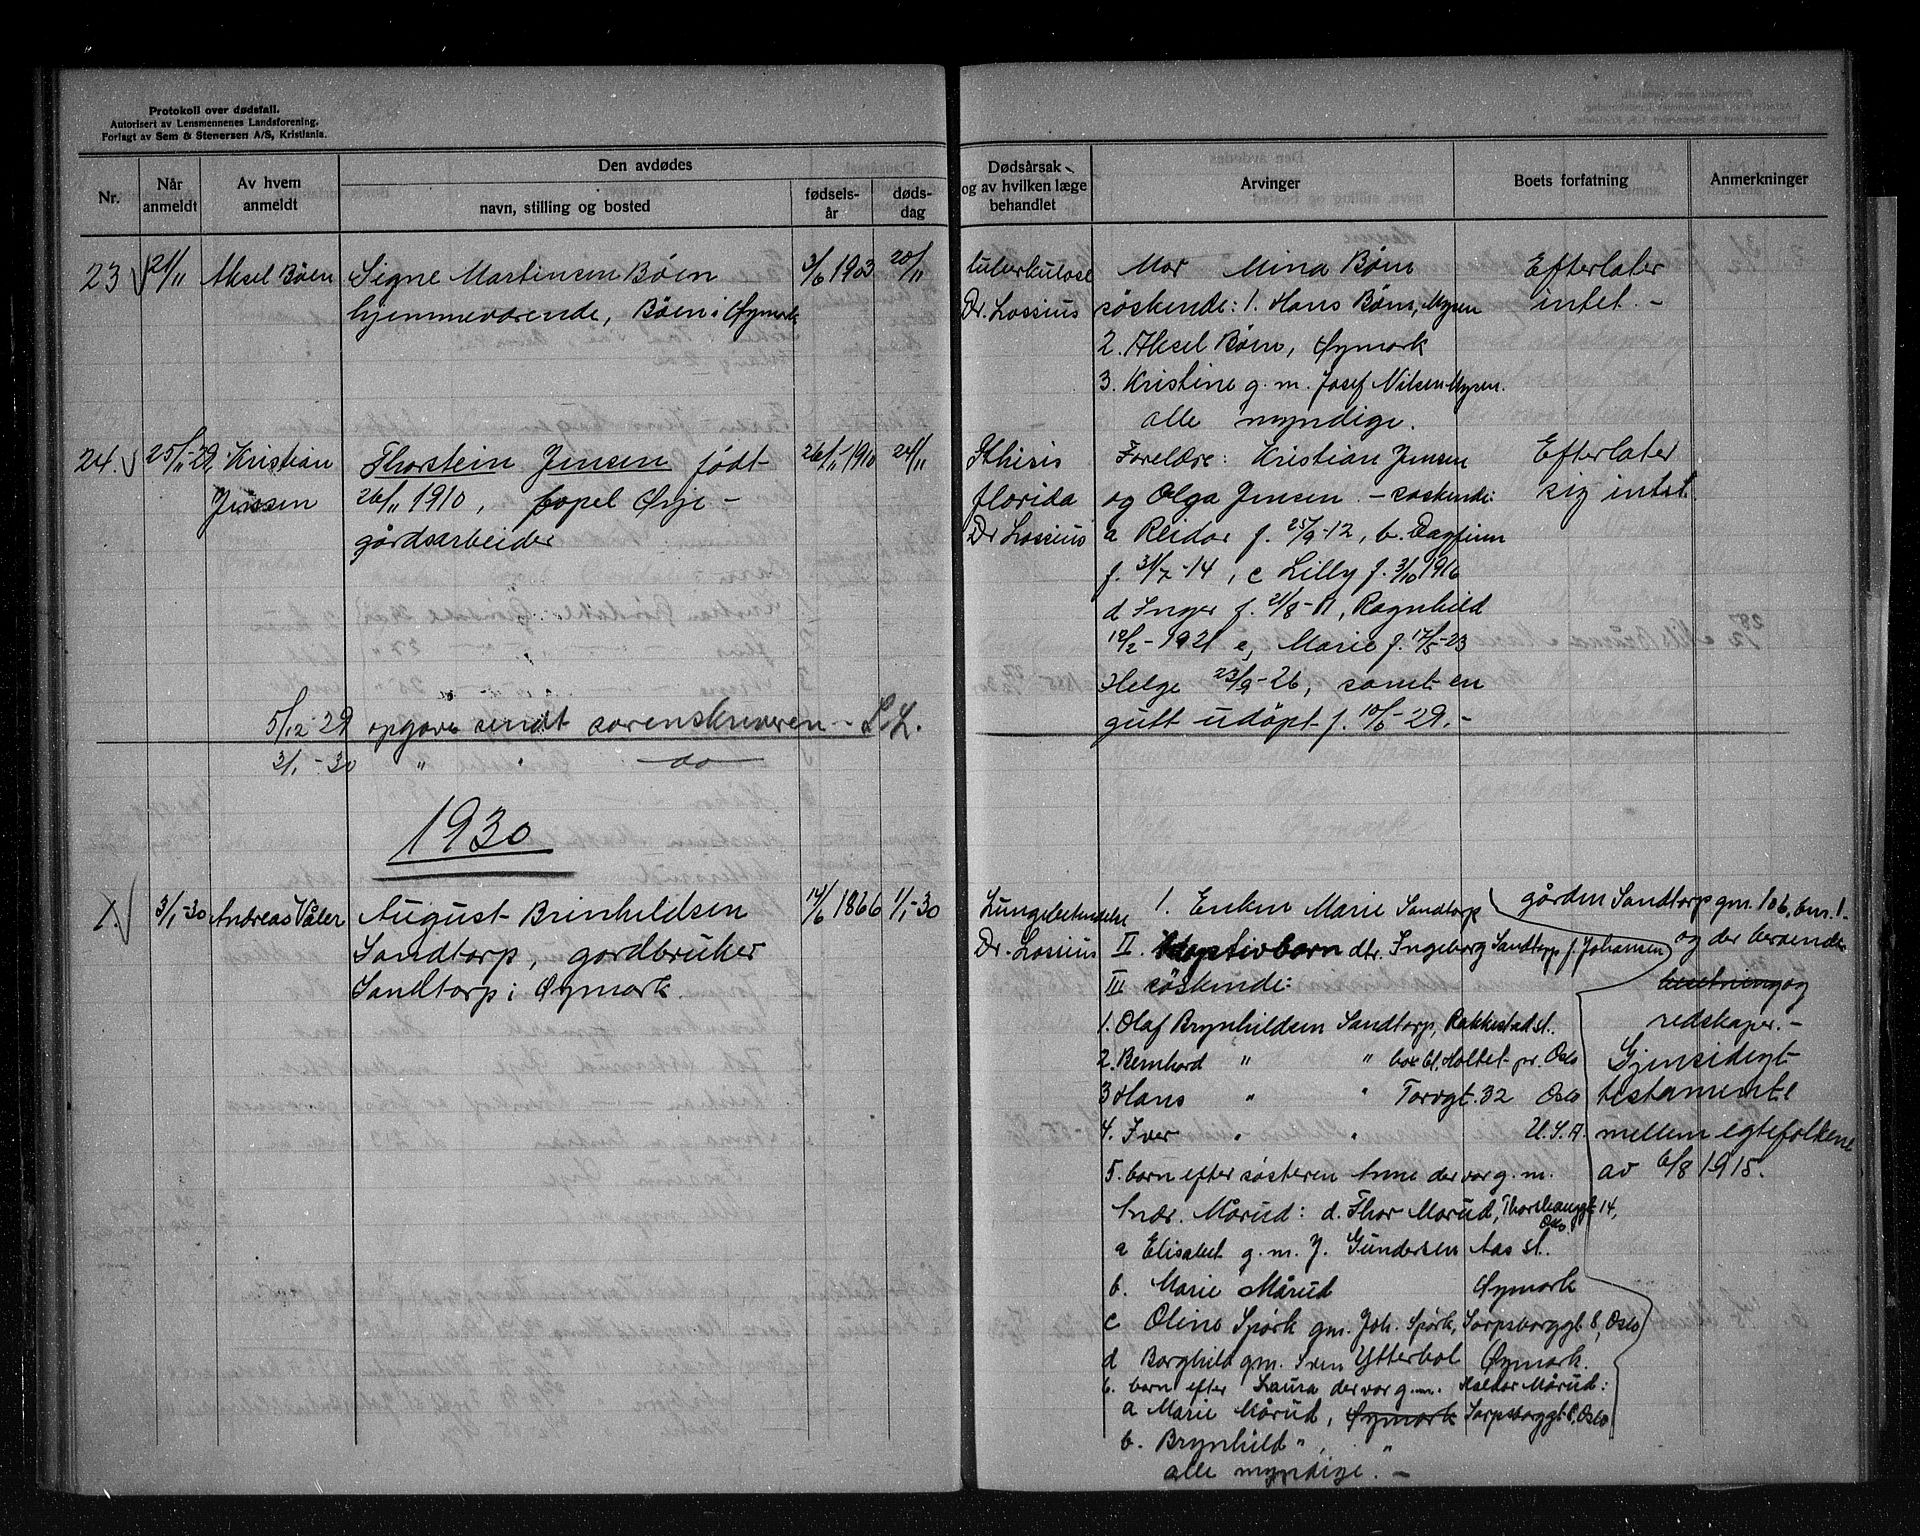 Protokoll over dødsfall.
Autorisert av Lensmennenes Landsforening.
Forlagt av Sem & Stenersen A/S, Kristiania.
Nr.
Når anmeldt
Av hvem anmeldt
Den avdødes
navn, stilling og bosted
fødsels-år
døds-dag
Dødsårsak og av hvilken læge behandlet
Arvinger
Boets forfatning
Anmerkninger
23 21/11 Aksel Bøen Signe Martinsen Bøen 3/6 1903 20/11
hjemmeværende, Bøen i Øymark
tuberkulose
Dr. Lossius
Mor Mina Bøen
søskende: 1. Hans Bøen, Mysen
2. Aksel Bøen, Øymark
3. Kristine g. m. Josef Nilsen Mysen.
alle myndige.
Efterlater
intet. -
24. 25/11-29 Kristian Thorstein Jensen født 26/11 1910 24/11
Jensen 26/11 1910, bopel Ørje -
gårdsarbeider
Pthisis
florida
Dr Lossius
Foreldre: Kristian Jensen
og Olga Jensen. - søskende:
a Reidar f. 25/9-12, b. Dagfinn
f. 31/7-14, c Lilly f. 3/10 1916
d Inger f. 21/8-17, Ragnhild
12/2-1921 e, Marie f. 17/5-23
Helge 23/9-26, samt en
gutt udøpt f. 10/6-29.-
Efterlater
sig intet.
5/12-29 opgave sendt sorenskriveren - L.L.
3/1-30 " " do
1930
1. 3/1-30 Andreas Våler August Brinhildsen 14/6 1866 1/1-30
Sandtorp, gårdbruker
Sandtorp i Øymark.
Lungebetendelse
Dr. Lossius
1. Enken Marie Sandtorp
II. Adoptivbarn dtr. Ingeborg Sandtorp f. Johansen
III søskende:
1. Olaf Brynhildsen Sandtorp, Rakkestad st.
2. Bernhard " " Holtet pr. Oslo
3 Hans " " Torvgt. 32 Oslo
4. Iver " " U.S.A.
5. barn efter søsteren Anne der var g. m.
Andr. Mårud: d. Thor Mårud, 14,
Oslo
a Elisabet g. m. J. Gundersen Aas st.
b. Marie Mårud Øymark
c Oline Spørk gm. Joh. Spørk, Sarpsborggt 8, Oslo
d Borghild gm. Sven Ytterbøl Øymark.
6. barn efter Laura der var g.m. Haldor Mårud:
a Marie Mårud, Øymark Sarpsborggt 8, Oslo
b. Brynhild " , "
alle myndige. -
gården Sandtorp gnr. 106, bnr. 1-
og der beroende
besetning og
redskaper. -
Gjensidigt
testamente
mellem egtefolkene
av 6/8 1915.